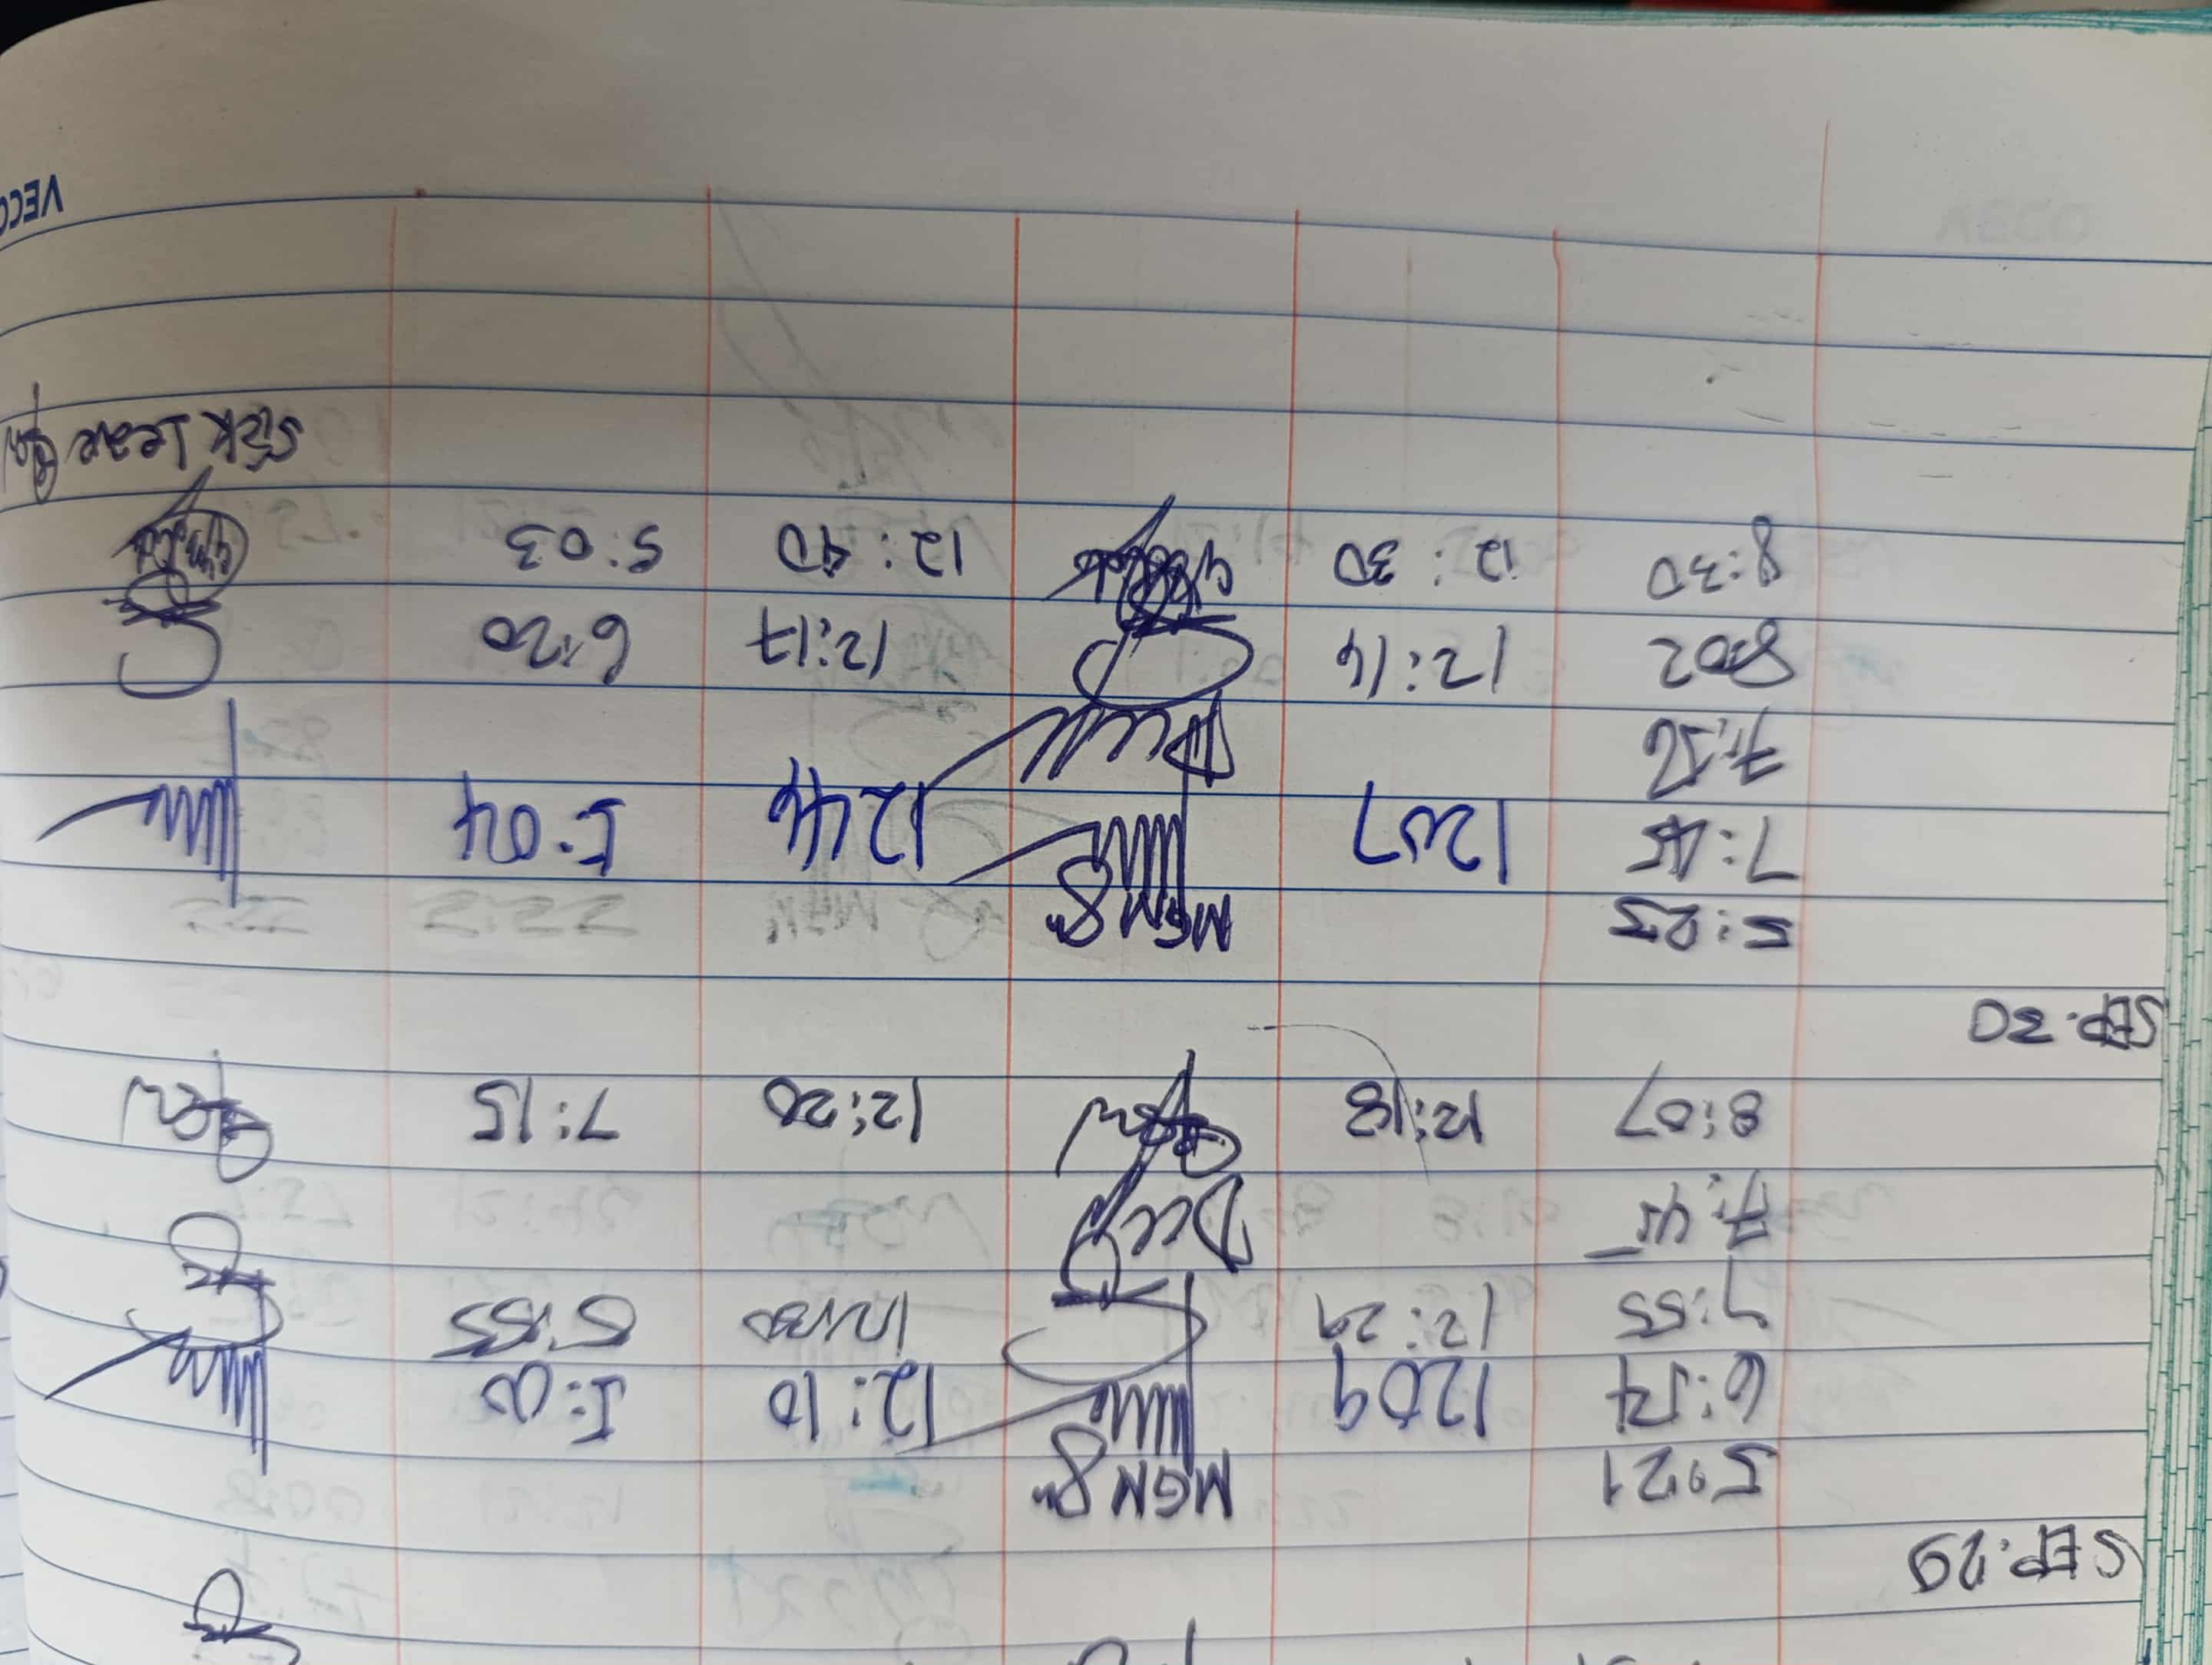 SEP. 29
5:21 MGN
6:57 1209 12:10 5:00
7:55 12:29 12:30 5:55
7:45
8:07 12:18 12:20 7:15
SEP. 30
5:25 MGN
7:45 1207 5:04
7:56
8:02 12:17 6:20
8:30 12:30 12:40 5:03
Sick Leave
VECO